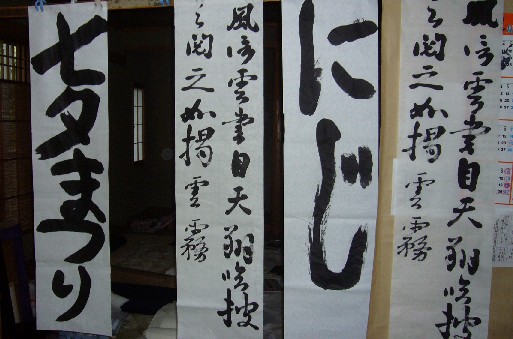 風信雲書自天翔臨披
之閲之如揭雲霧
にじ
風信雲書自天翔臨披
之閲之如揭雲霧
七夕まつり